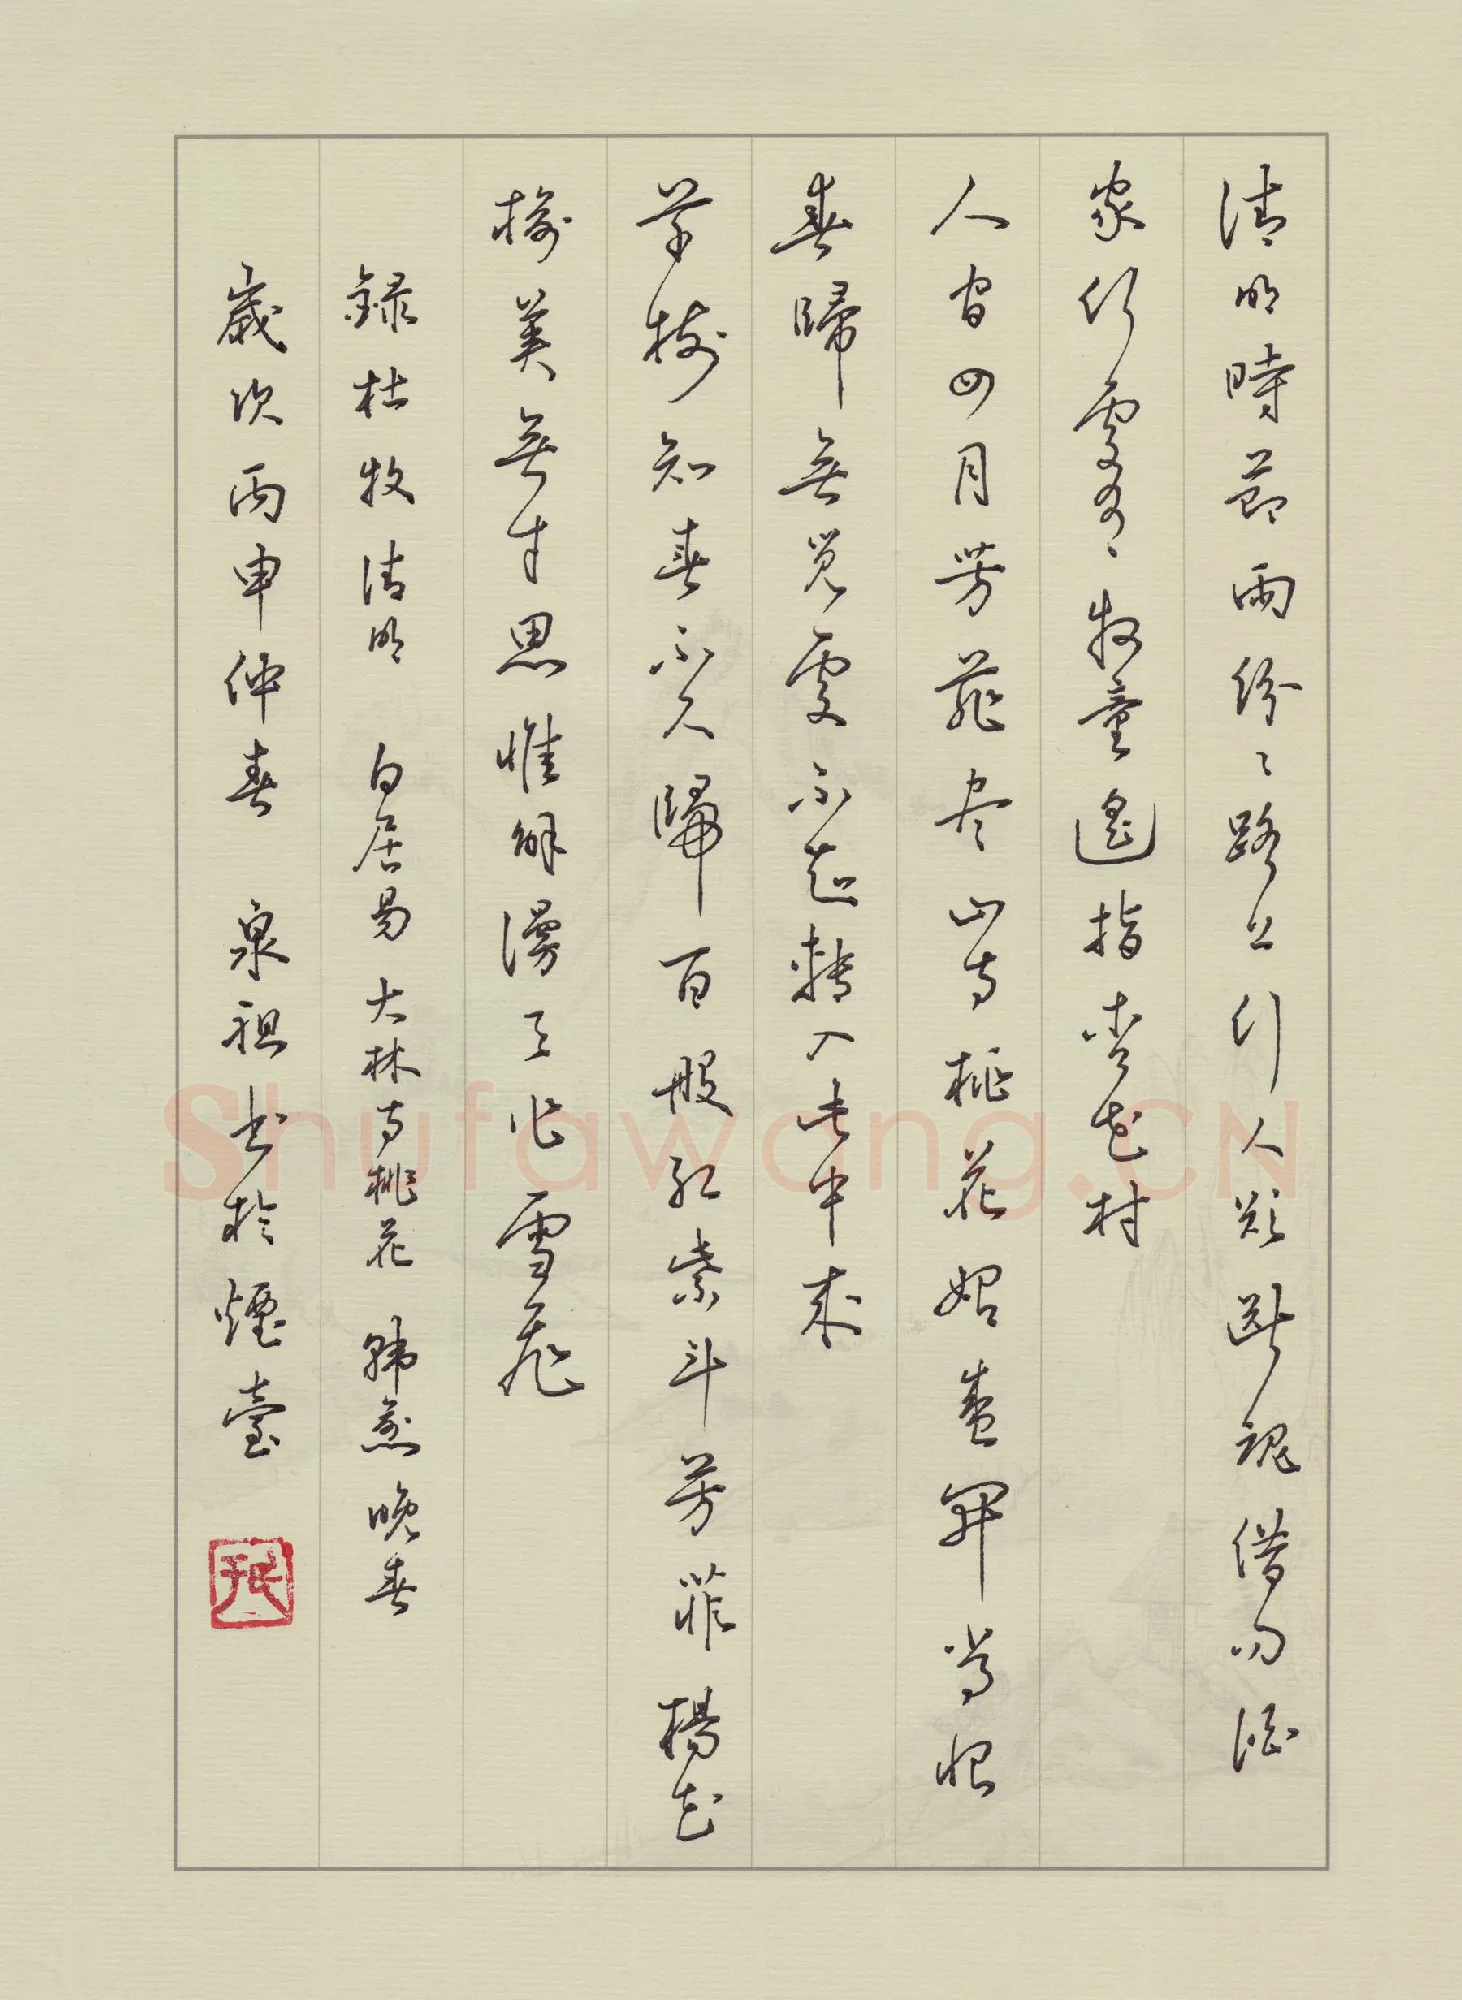 清明時節雨紛々路上行人欲斷魂借問酒
家何處有牧童遙指杏花村
人間四月芳菲尽山寺桃花始盛開常恨
春歸無覓處不起轉入此中來
草樹知春不久歸百般紅紫斗芳菲楊花
榆莢無才思惟解漫天作雪飛
録杜牧清明 白居易大林寺桃花 韓愈晚春
歲次丙申仲春 泉祖書於煙臺
Shufawang.CN